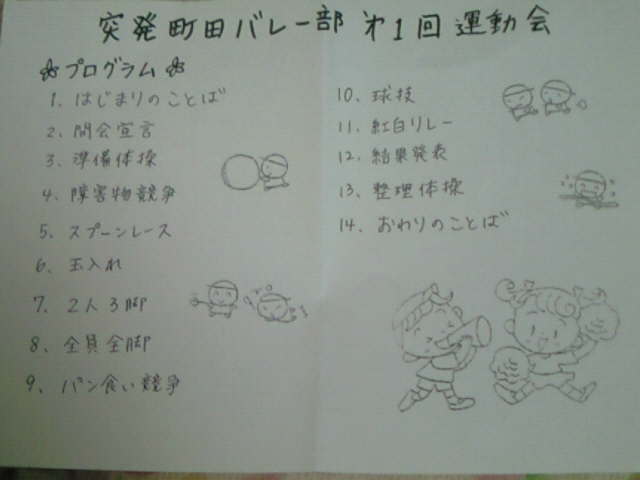 突発町田バレー部 第1回 運動会
プログラム
1. はじまりのことば
2. 開会宣言
3. 準備体操
4. 障害物競争
5. スプーンレース
6. 玉入れ
7. 2人3脚
8. 全員全脚
9. パン食い競争
10. 球技
11. 紅白リレー
12. 結果発表
13. 整理体操
14. おわりのことば